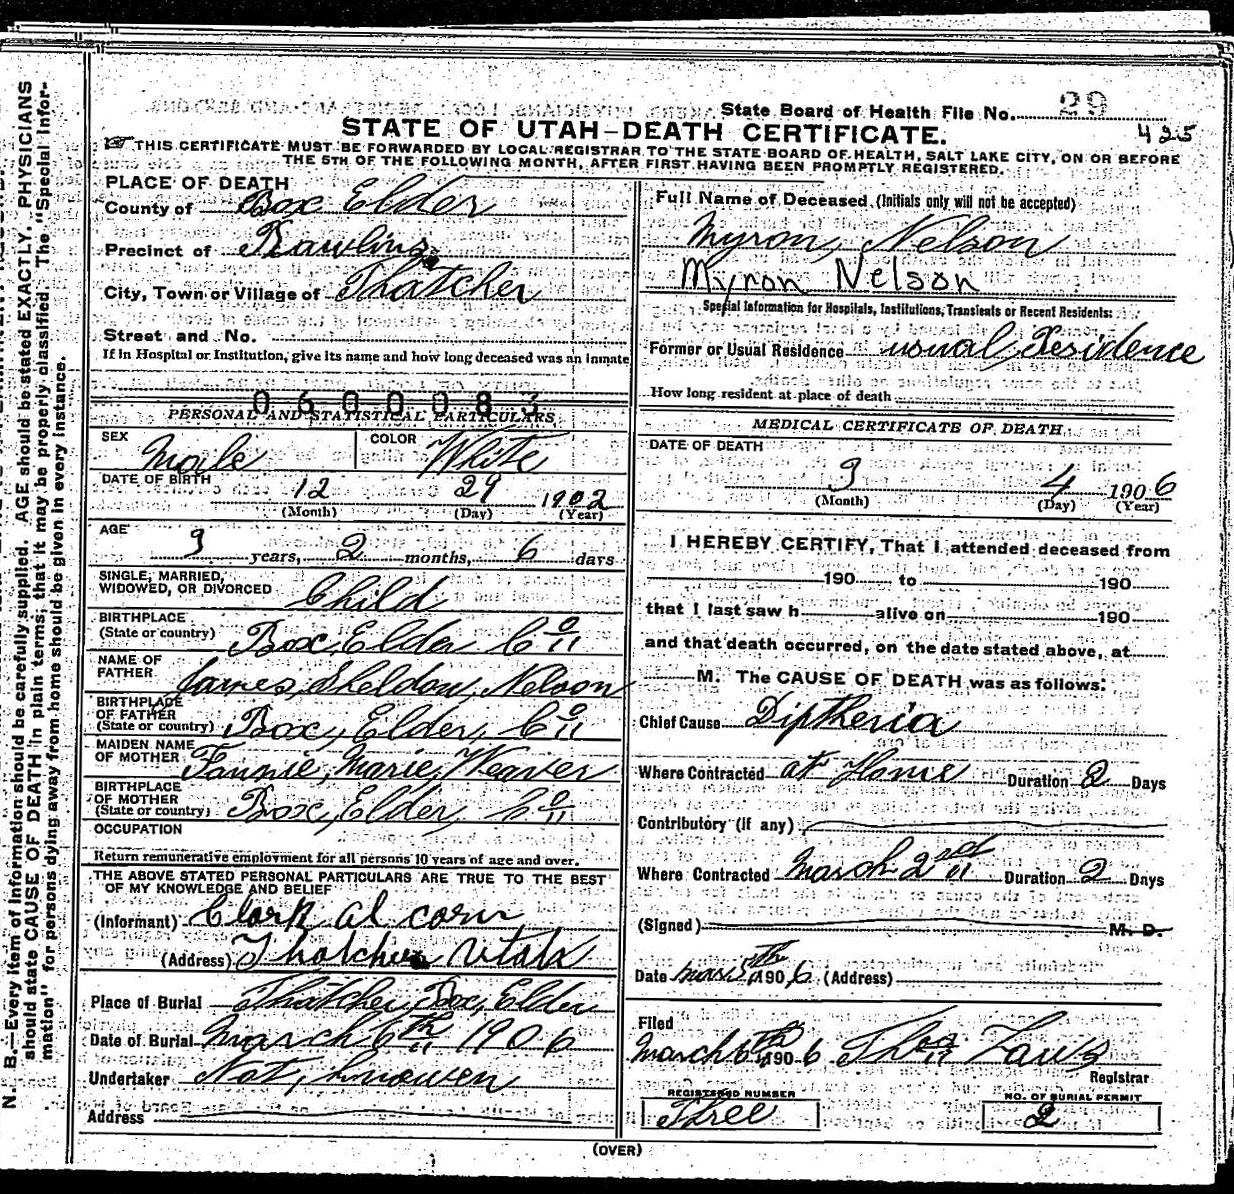 State Board of Health File No. 29
425
STATE OF UTAH–DEATH CERTIFICATE.
☞ THIS CERTIFICATE MUST BE FORWARDED BY LOCAL REGISTRAR TO THE STATE BOARD OF HEALTH, SALT LAKE CITY, ON OR BEFORE
THE 5TH OF THE FOLLOWING MONTH, AFTER FIRST HAVING BEEN PROMPTLY REGISTERED.
N. B.—Every item of Information should be carefully supplied. AGE should be stated EXACTLY. PHYSICIANS
should state CAUSE OF DEATH in plain terms, that it may be properly classified. The "Special Infor-
mation" for persons dying away from home should be given in every instance.
PLACE OF DEATH
County of Box Elder
Precinct of Rawlins
City, Town or Village of Thatcher
Street and No.
If in Hospital or Institution, give its name and how long deceased was an Inmate
0600083
PERSONAL AND STATISTICAL PARTICULARS
SEX Male COLOR White
DATE OF BIRTH 12 29 1902
(Month) (Day) (Year)
AGE 3 years, 2 months, 6 days
SINGLE, MARRIED,
WIDOWED, OR DIVORCED Child
BIRTHPLACE
(State or country) Box, Elder Co
NAME OF
FATHER James, Sheldon, Nelson
BIRTHPLACE
OF FATHER
(State or country) Box, Elder, Co
MAIDEN NAME
OF MOTHER Fannie, Marie, Weaver
BIRTHPLACE
OF MOTHER
(State or country) Box, Elder, Co
OCCUPATION
Return remunerative employment for all persons 10 years of age and over.
THE ABOVE STATED PERSONAL PARTICULARS ARE TRUE TO THE BEST
OF MY KNOWLEDGE AND BELIEF
(Informant) Clark al corn
(Address) Thatcher Utah
Place of Burial Thatcher, Box, Elder
Date of Burial March 6th 1906
Undertaker Not, knowen
Address
Full Name of Deceased (Initials only will not be accepted)
Myron, Nelson
Myron Nelson
Special Information for Hospitals, Institutions, Transients or Recent Residents:
Former or Usual Residence usual, Residence
How long resident at place of death
MEDICAL CERTIFICATE OF DEATH
DATE OF DEATH
3 4 1906
(Month) (Day) (Year)
I HEREBY CERTIFY, That I attended deceased from
190 to 190
that I last saw h alive on 190
and that death occurred, on the date stated above, at
M. The CAUSE OF DEATH was as follows:
Chief Cause Diptheria
Where Contracted at Home Duration 2 Days
Contributory (if any)
Where Contracted March 2nd Duration 2 Days
(Signed) M. D.
Date Mar 5th 1906 (Address)
Filed
March 6th 1906 Thos Laws
Registrar
REGISTERED NUMBER
Three
NO. OF BURIAL PERMIT
2
(OVER)